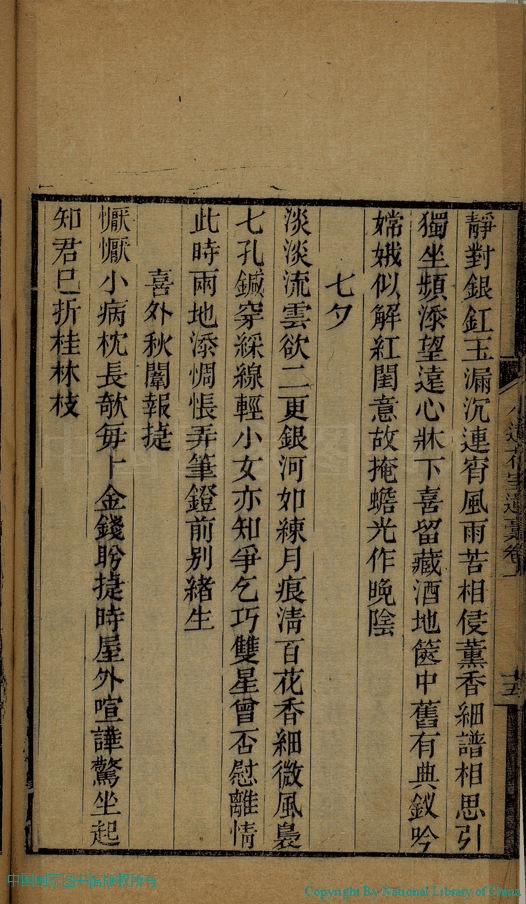 靜對銀釭玉漏沉連宵風雨苦相侵薰香細譜相思引
獨坐頻添望遠心牀下喜留藏酒地篋中舊有典釵吟
嫦娥似解紅閨意故掩蟾光作晚陰
七夕
淡淡流雲欲二更銀河如練月痕淸百花香細微風裊
七孔鍼穿綵線輕小女亦知爭乞巧雙星曾否慰離情
此時兩地添惆悵弄筆鐙前别緒生
喜外秋闈報捷
懨懨小病枕長欹每卜金錢盼捷時屋外喧譁驚坐起
知君已折桂林枝
十五
中国国家图书馆版权所有
Copyright By National Library of China